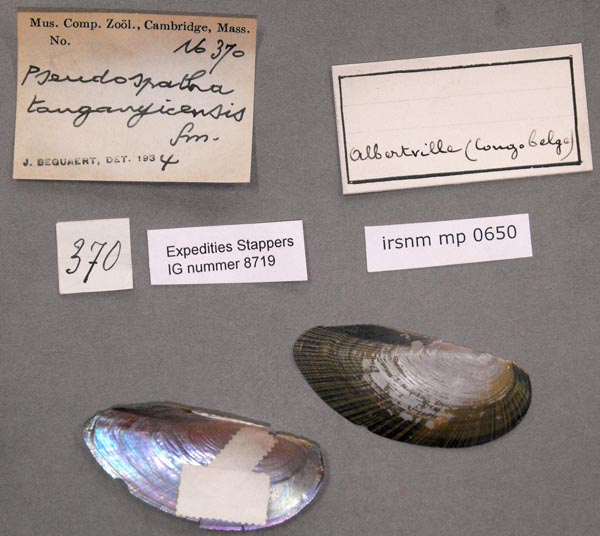 Mus. Comp. Zoöl., Cambridge, Mass.
No. No 370
Pseudospatha
tanganyicensis
Sm.
J. BEQUAERT, DET. 1934
Albertville (Congo belge)
370
Expedities Stappers
IG nummer 8719
irsnm mp 0650